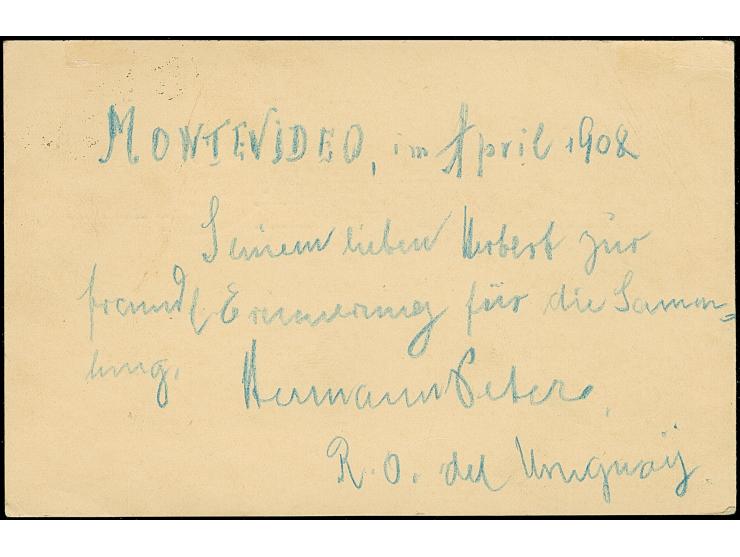 MONTEVIDEO, im April 1908
Seinem lieben Herbert zur
freundl Erinnerung für die Samm=
lung.
Hermann Peters,
R. O. del Uruguay